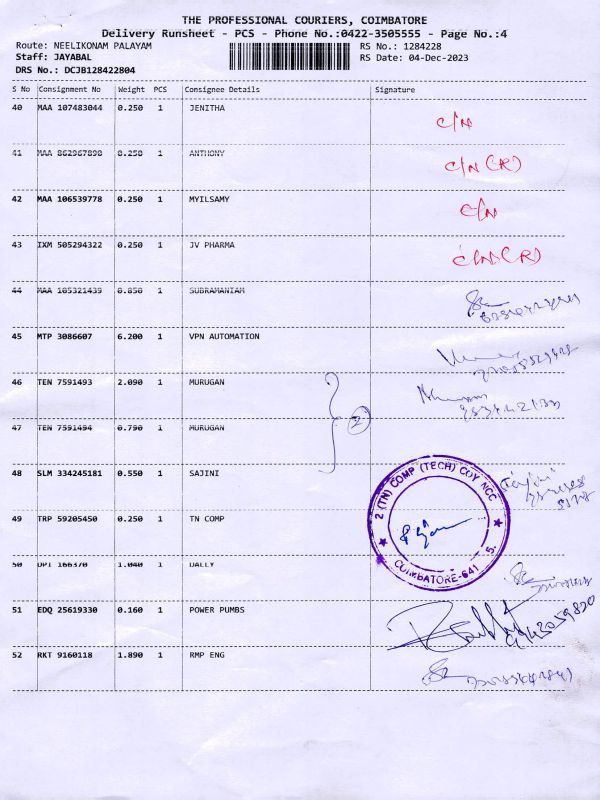 THE PROFESSIONAL COURIERS, COIMBATORE
Delivery Runsheet - PCS - Phone No.:0422-3505555 - Page No.:4
Route: NEELIKONAM PALAYAM RS No.: 1284228
Staff: JAYABAL RS Date: 04-Dec-2023
DRS No.: DCJB128422804
S No Consignment No Weight PCS Consignee Details Signature
40 MAA 107483044 0.250 1 JENITHA
C/N
41 MAA 862967890 0.250 1 ANTHONY
C/N (R)
42 MAA 106539778 0.250 1 MYILSAMY
C/N
43 IXM 505294322 0.250 1 JV PHARMA
C/N (R)
44 MAA 105321439 0.850 1 SUBRAMANIAM
45 MTP 3086607 6.200 1 VPN AUTOMATION
46 TEN 7591493 2.090 1 MURUGAN
47 TEN 7591494 0.790 1 MURUGAN
2
48 SLM 334245181 0.550 1 SAJINI
49 TRP 59205450 0.250 1 TN COMP
2 (TN) COMP (TECH) COY NCC
COIMBATORE-641 5.
50 OPI 166370 1.040 1 DALLY
51 EDQ 25619330 0.160 1 POWER PUMBS
52 RKT 9160118 1.890 1 RMP ENG